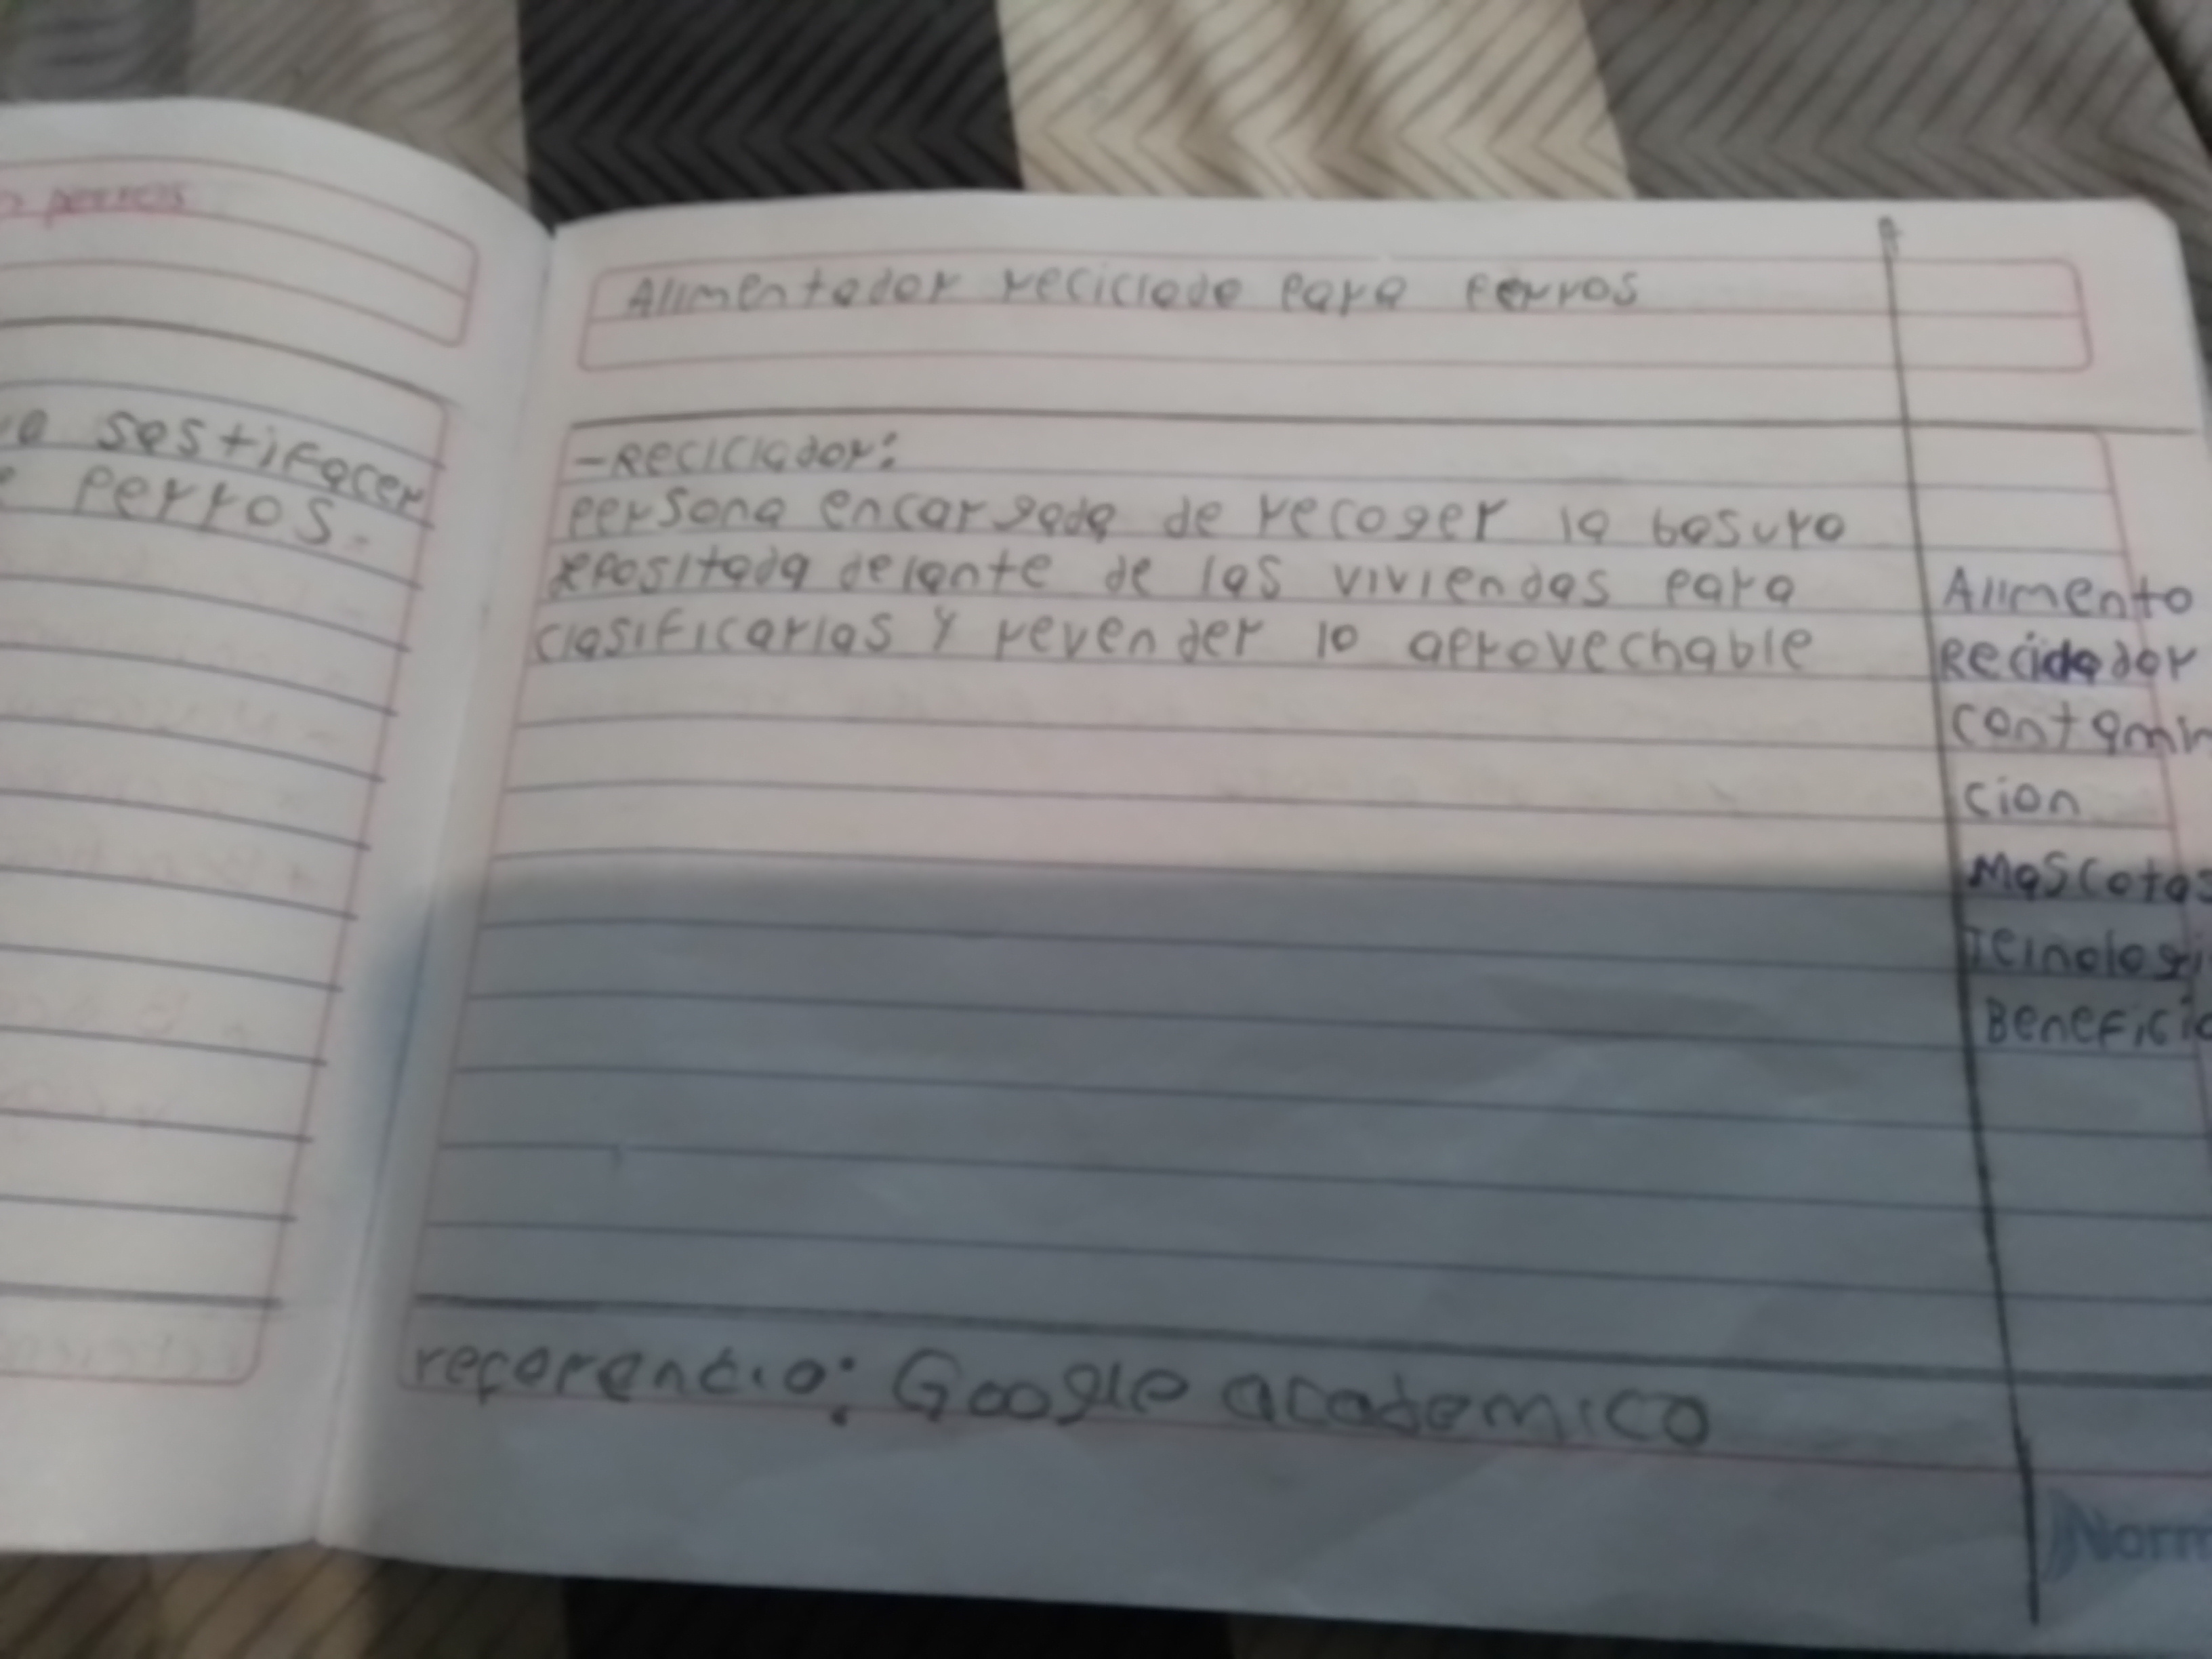 perros
sastifacer
perros.
Alimentador reciclado para perros
-Reciclador:
persona encargada de recoger la basura
depositada delante de las viviendas para
clasificarlas y revender lo aprovechable
Alimento
Reciclador
contamin
cion
Mascotas
Beneficio
referencia: Google academico
Norm